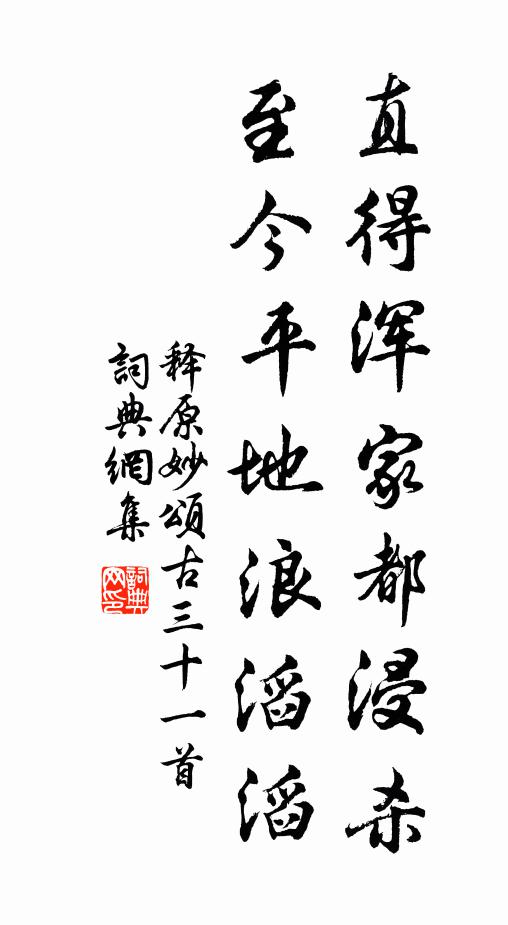 直得浑家都浸杀
至今平地浪滔滔
释原妙頌古三十一首
詞典網集
詞典网印